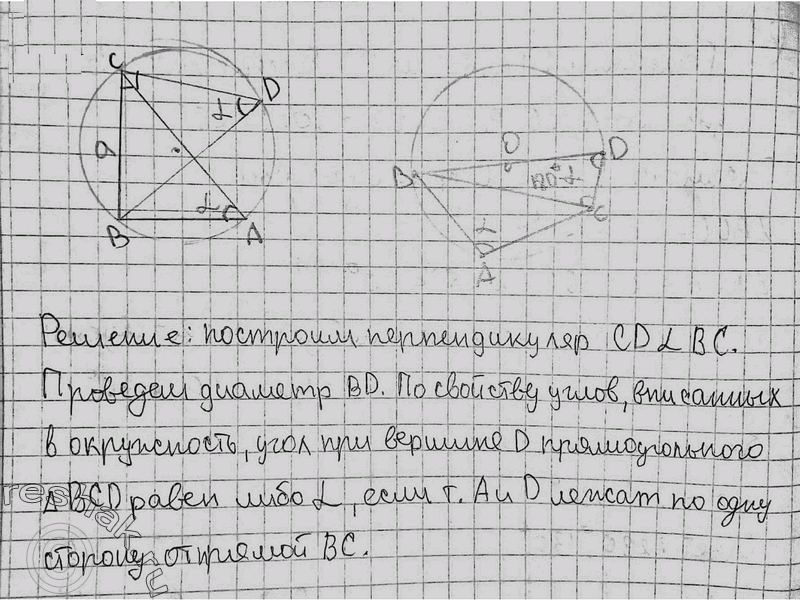 C
D
α
a
α
B
A
O
D
B
180°-α
C
α
A
Решение: построим перпендикуляр CD⊥BC.
Проведем диаметр BD. По свойству углов, вписанных
в окружность, угол при вершине D прямоугольного
ΔBCD равен либо α, если т. A и D лежат по одну
сторону от прямой BC.
reshak.ru